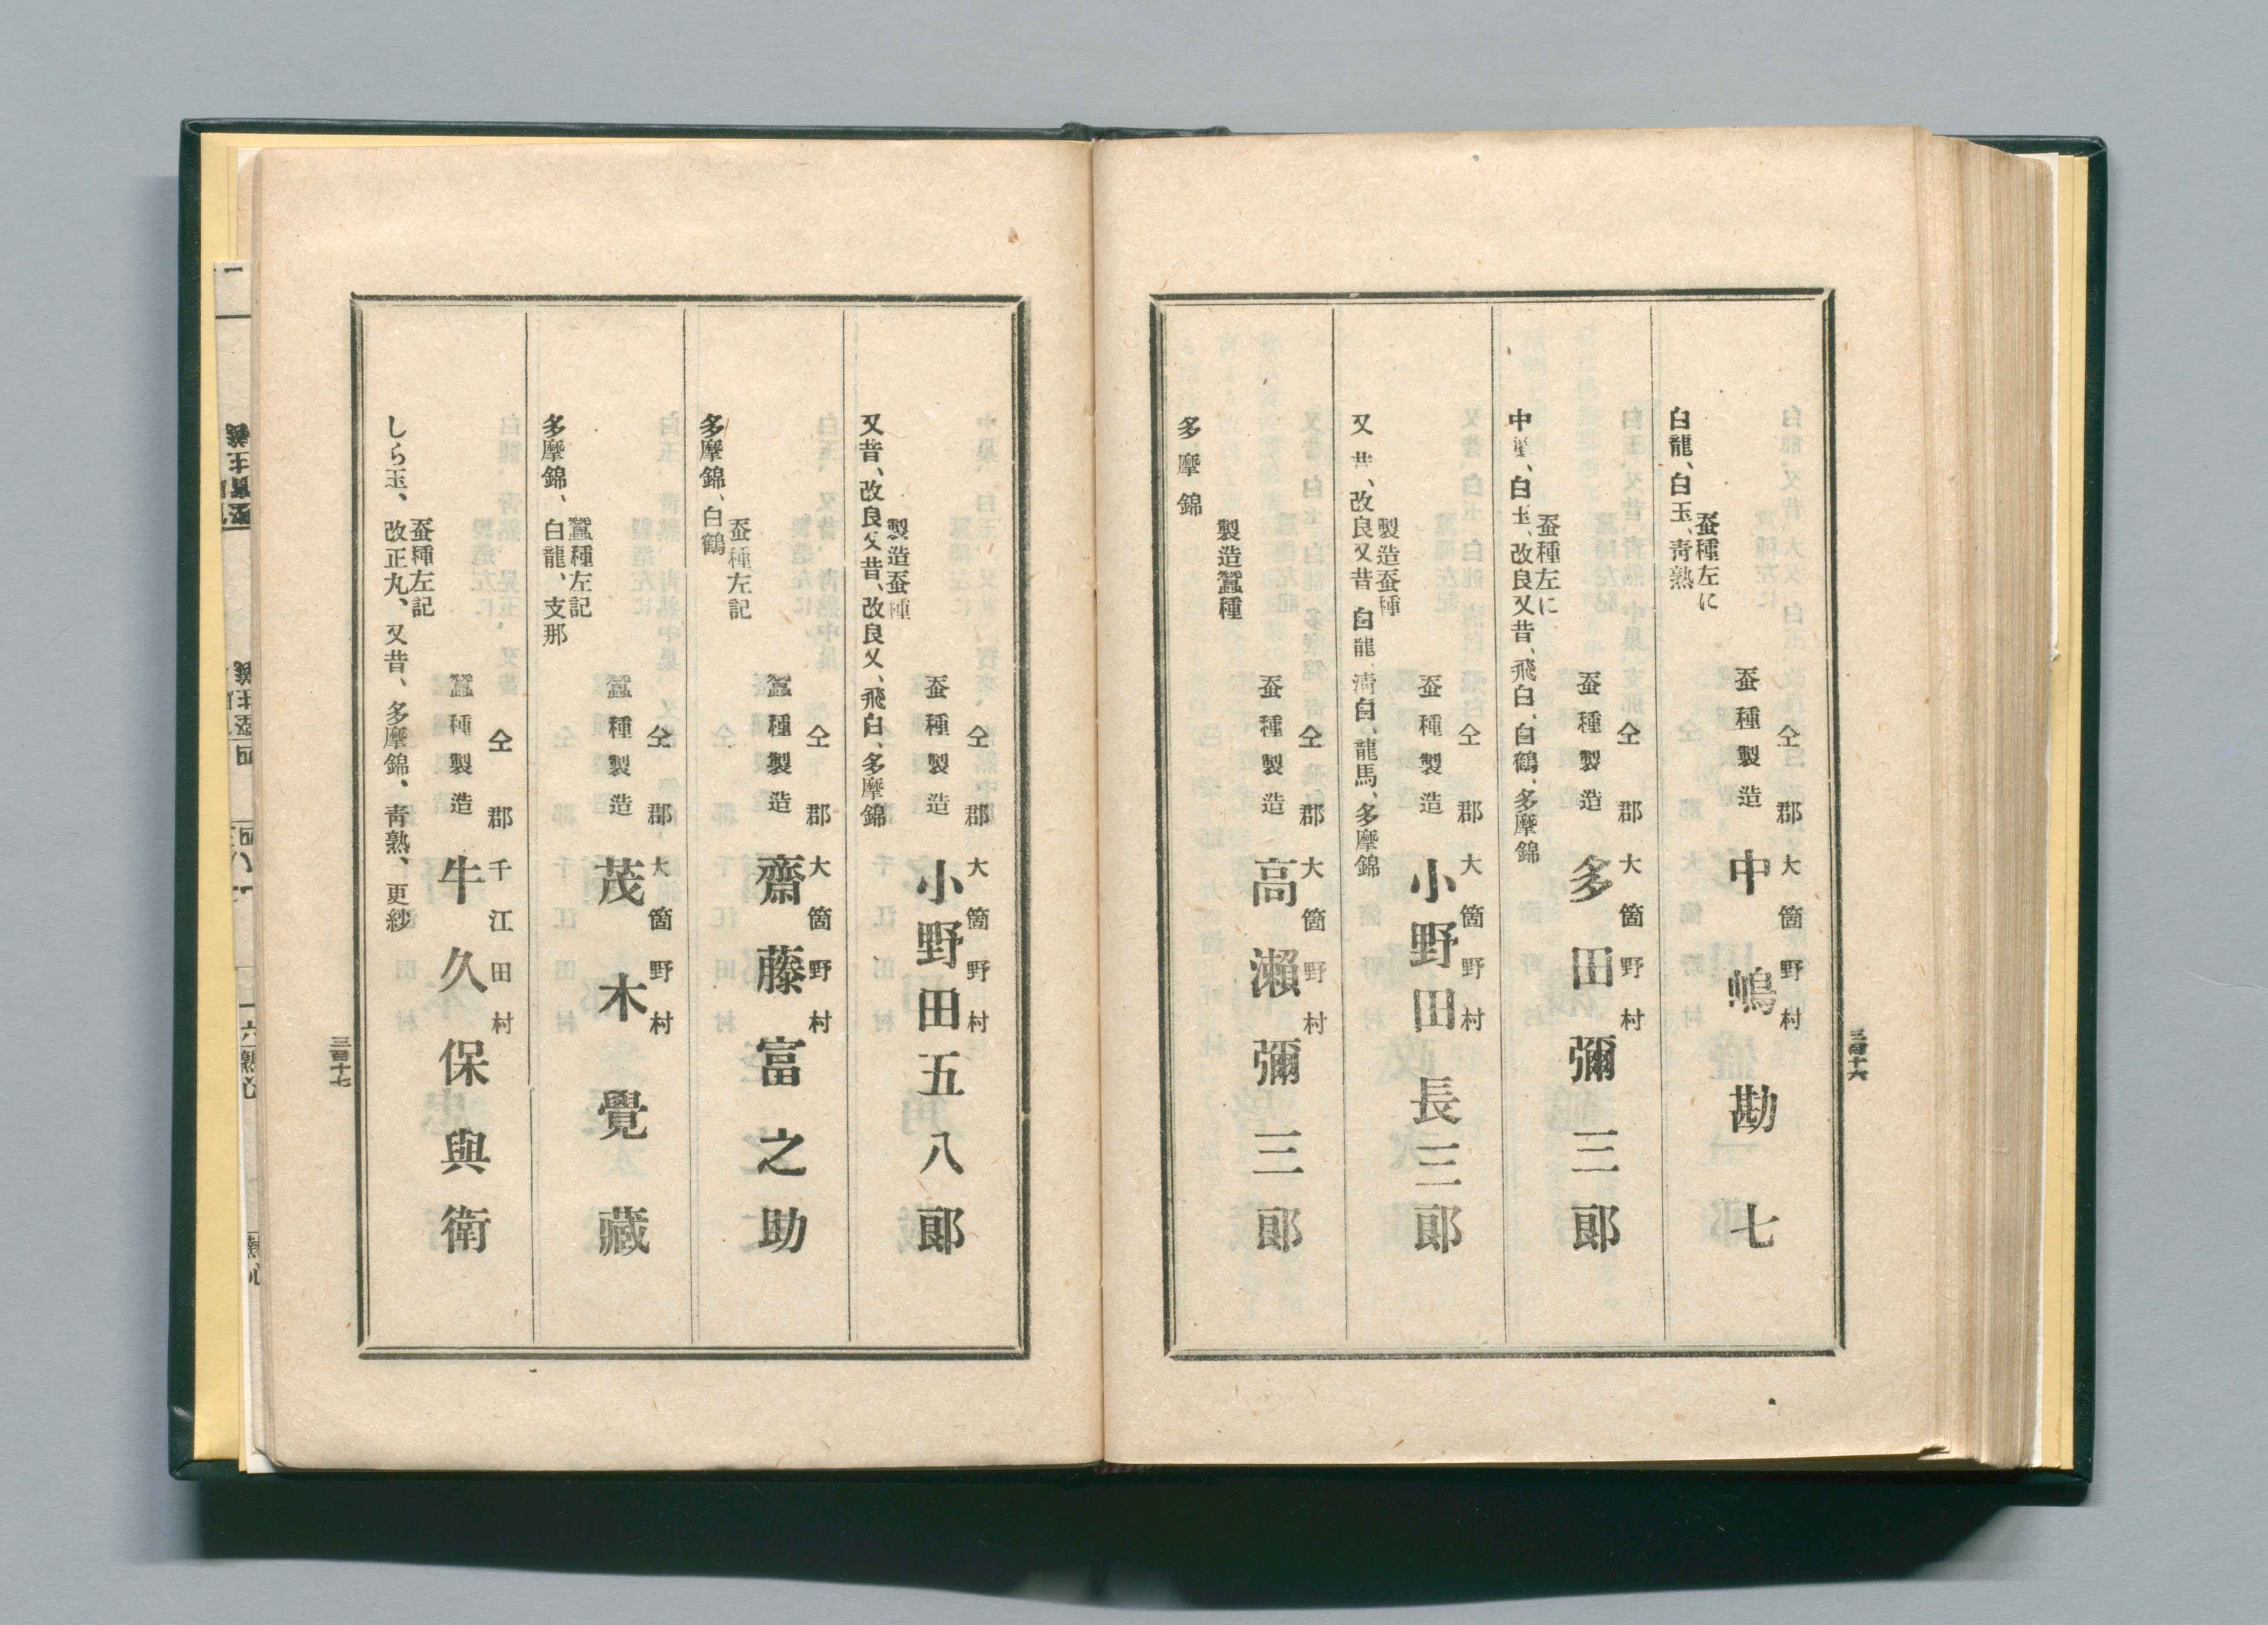 三百十六
仝郡大箇野村
蚕種製造 中嶋勘七
蚕種左に
白龍、白玉、靑熟
仝郡大箇野村
蚕種製造 多田彌三郎
蚕種左に
中巢、白玉、改良又昔、飛白、白鶴、多摩錦
仝郡大箇野村
蚕種製造 小野田長三郎
製造蚕種
又昔、改良又昔、白龍、淸白、龍馬、多摩錦
仝郡大箇野村
蚕種製造 高瀨彌三郎
製造蠶種
多摩錦
仝郡大箇野村
蚕種製造 小野田五八郎
製造蚕種
又昔、改良又昔、改良又、飛白、多摩錦
仝郡大箇野村
蠶種製造 齋藤富之助
蚕種左記
多摩錦、白鶴
仝郡大箇野村
蠶種製造 茂木覺藏
蠶種左記
多摩錦、白龍、支那
仝郡千江田村
蠶種製造 牛久保與衛
蚕種左記
しら玉、改正丸、又昔、多摩錦、靑熟、更紗
三百十七